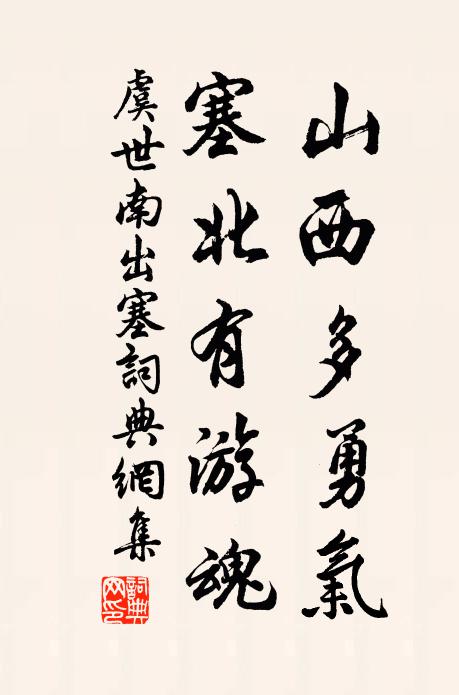 山西多勇氣
塞北有游魂
虞世南出塞詞典網集
詞典
网印